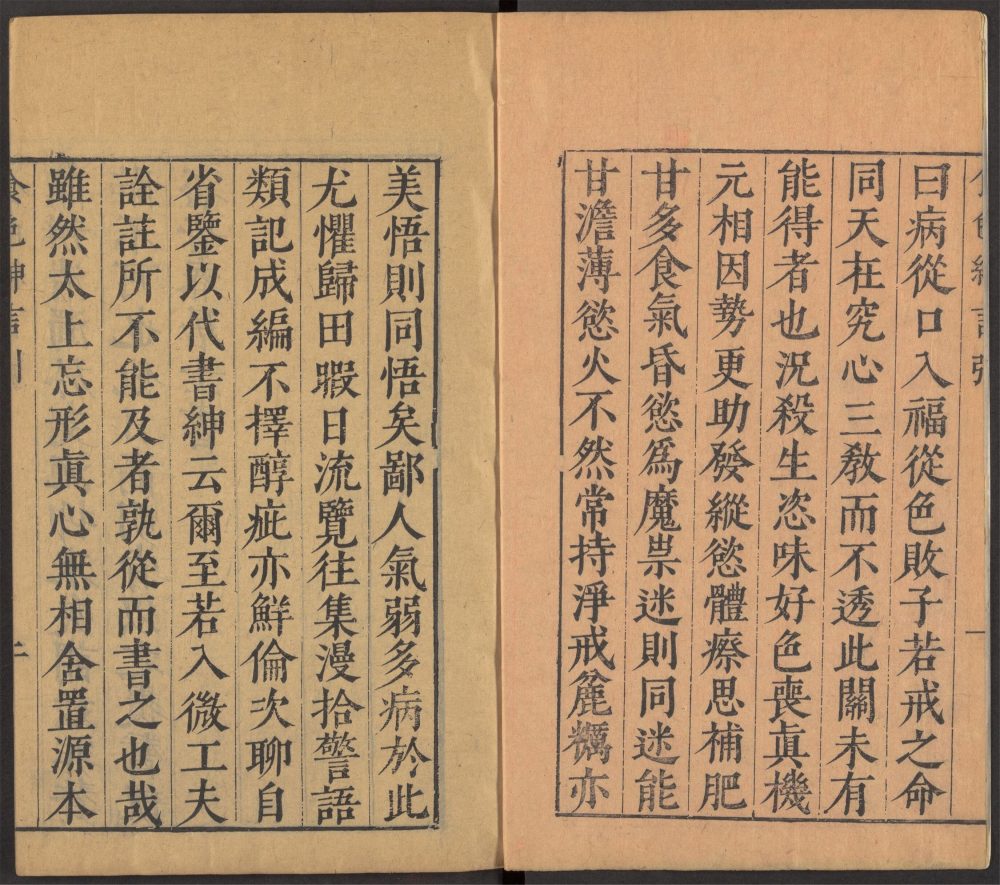 曰病從口入福從色敗子若戒之命
同天在究心三教而不透此關未有
能得者也況殺生恣味好色喪眞機
元相因勢更助發縱慾體瘵思補肥
甘多食氣昏慾爲魔祟迷則同迷能
甘澹薄慾火不然常持淨戒麄糲亦
美悟則同悟矣鄙人氣弱多病於此
尤懼歸田暇日流覽往集漫拾警語
類記成編不擇醇疵亦鮮倫次聊自
省鑒以代書紳云爾至若入微工夫
詮註所不能及者孰從而書之也哉
雖然太上忘形眞心無相舍置源本
食色紳言引